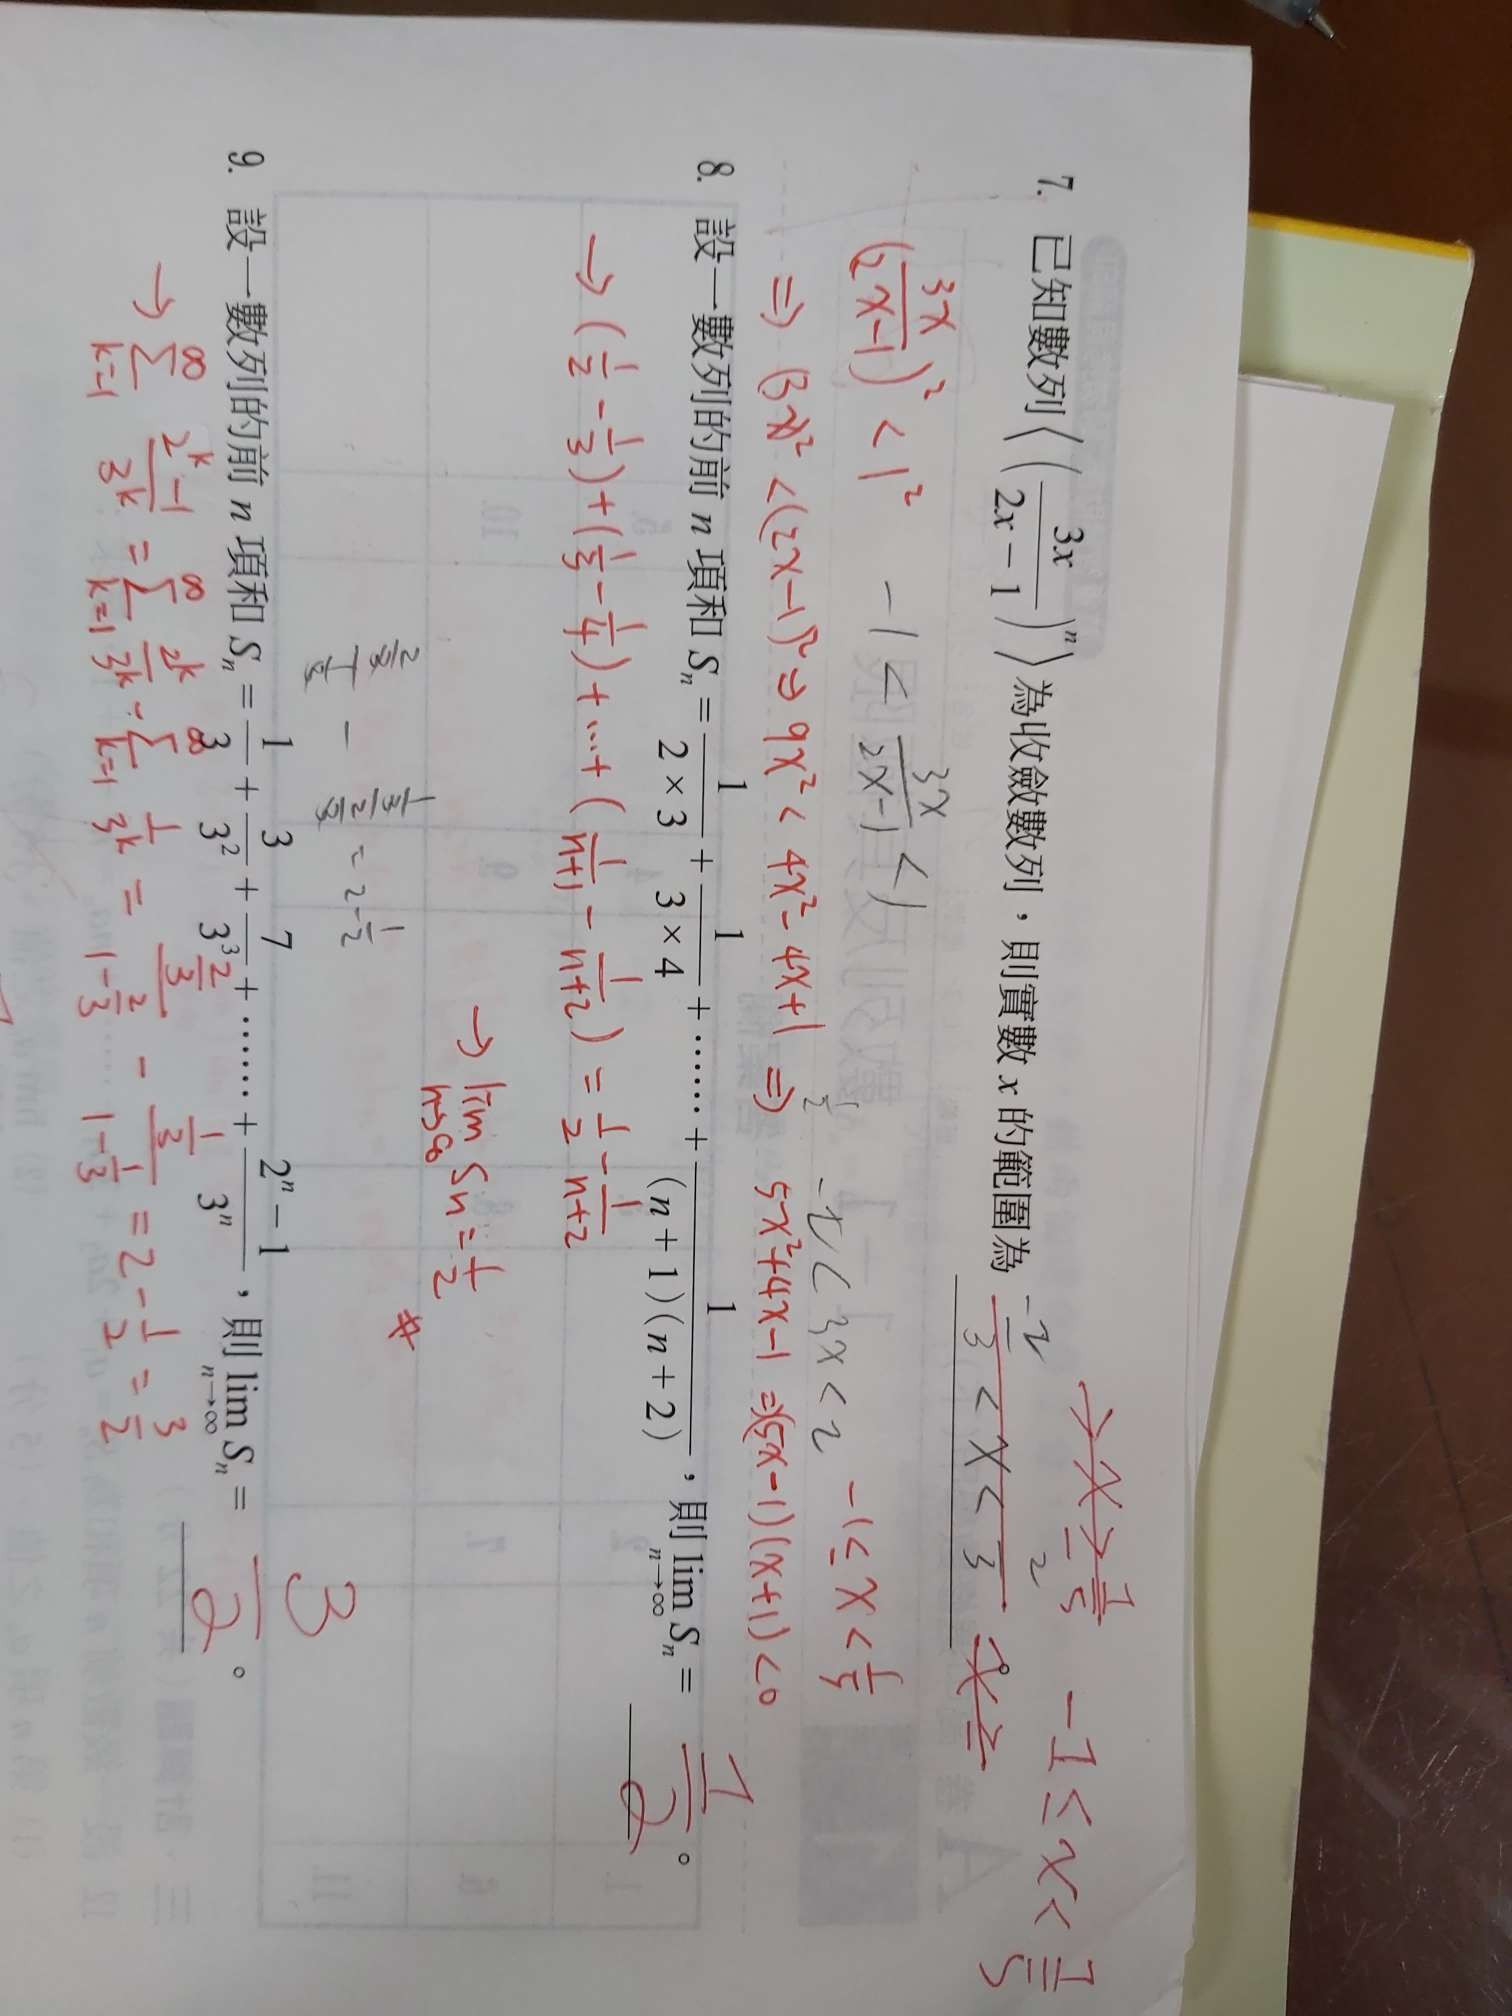 7. 已知數列⟨(3x/(2x-1))ⁿ⟩為收斂數列，則實數 x 的範圍為 -2/3 < x < 2/3 。
-1 ≤ x < 1/5
(3x/(2x-1))² < 1²
-1 < 3x/(2x-1) < 1
-2 < 3x < 2
-1 ≤ x < 1/5
⇒ (3x)² < (2x-1)² ⇒ 9x² < 4x²-4x+1 ⇒ 5x²+4x-1 ⇒ (5x-1)(x+1)<0
8. 設一數列的前 n 項和 Sₙ = 1/(2×3) + 1/(3×4) + …… + 1/((n+1)(n+2))，則 lim n→∞ Sₙ = 1/2 。
→ (1/2 - 1/3) + (1/3 - 1/4) + … + (1/(n+1) - 1/(n+2)) = 1/2 - 1/(n+2)
→ lim n→∞ Sn = 1/2
9. 設一數列的前 n 項和 Sₙ = 1/3 + 3/3² + 7/3³ + …… + (2ⁿ-1)/3ⁿ，則 lim n→∞ Sₙ = 3/2 。
= 2 - 1/2
→ ∞Σk=1 (2ᵏ-1)/3ᵏ = ∞Σk=1 2ᵏ/3ᵏ - ∞Σk=1 1/3ᵏ = (2/3)/(1-2/3) - (1/3)/(1-1/3) = 2 - 1/2 = 3/2